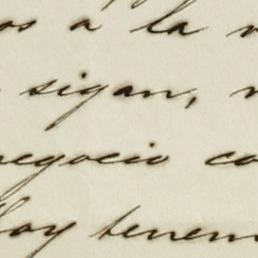 os a la
sigan,
negocio co
hoy tenem